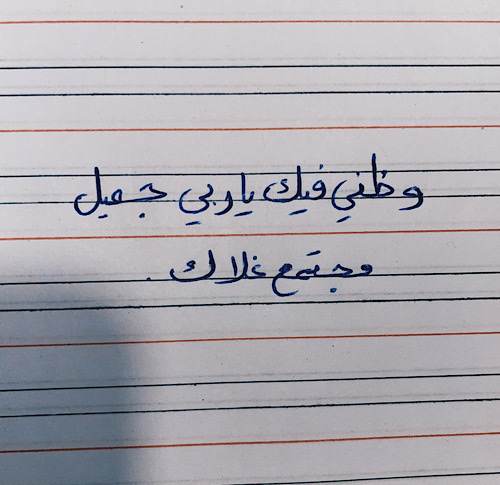 وظني فيك ياربي جميل
مجتمع غلاك